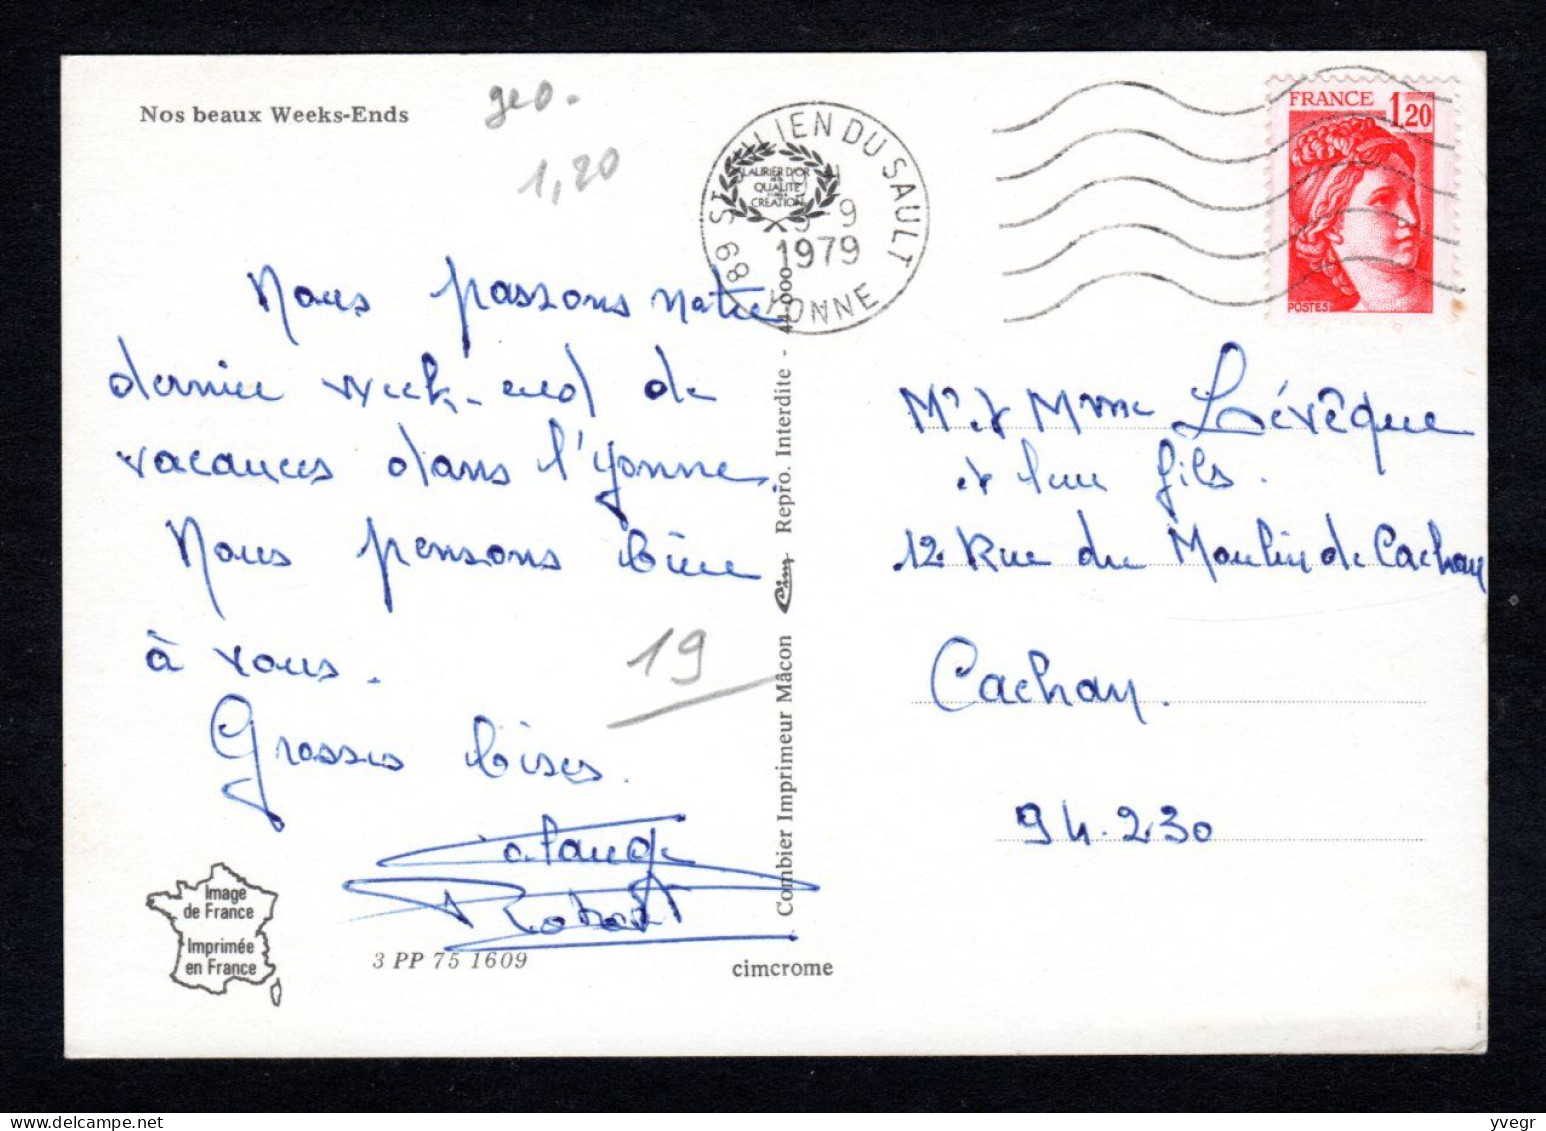 Nos beaux Weeks-Ends
geo.
1,20
LAURIER D'OR
QUALITÉ
CRÉATION
89 ST JULIEN DU SAULT
YONNE
9-9
1979
FRANCE 1,20
POSTES
Nous passons notre
dernier week-end de
vacances dans l'Yonne.
Nous pensons bien
à vous.
Grosses bises.
Robert
19
Mr et Mme Lévêque
et leur fils.
12 Rue du Moulin de Cachan
Cachan.
94.230
Combier Imprimeur Mâcon Cim Repro. Interdite - 44-000
Image
de France
Imprimée
en France
3 PP 75 1609
cimcrome
yvegr